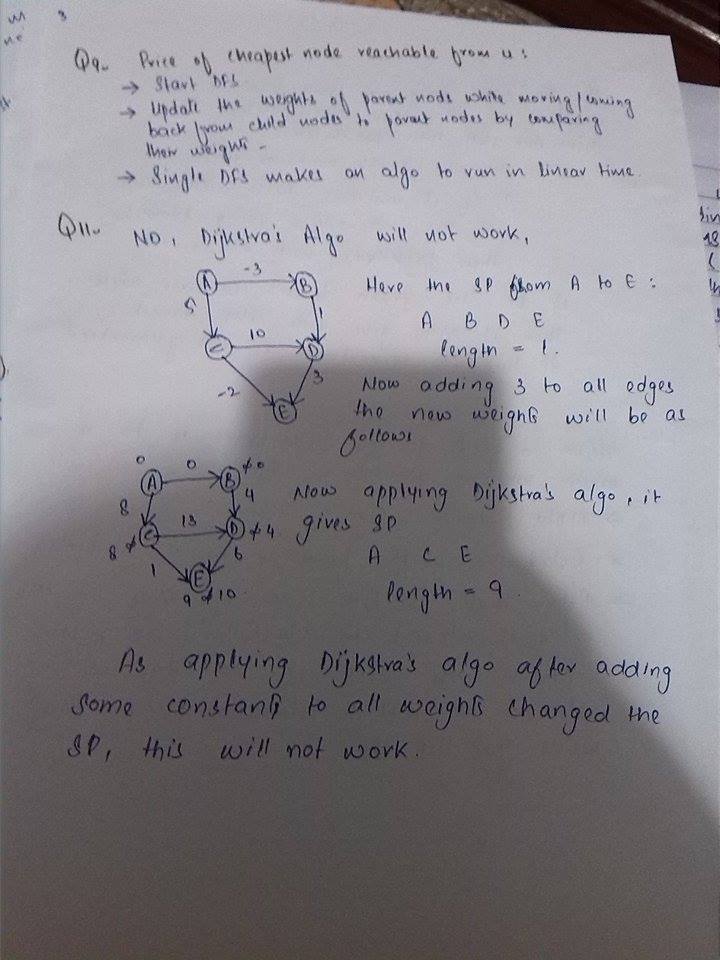 Q9- Price of cheapest node reachable from u :
→ Start DFS
→ Update the weights of parent nods while moving/coming
back from child nodes to parent nodes by comparing
their weights -
→ Single DFS makes an algo to run in linear time.
Q11- NO, Dijkstra's Algo will not work,
A -3 B
5 1
Here the SP from A to E :
A B D E
length = 1.
C 10 D
-2 3
E
Now adding 3 to all edges
the new weights will be as
follows
0 A 0 B ∞ 0
8 4
8 ∞ C 13 D ∞ 4
1 6
E
9 ∞ 10
Now applying Dijkstra's algo, it
gives SP
A C E
length = 9
As applying Dijkstra's algo after adding
some constants to all weights changed the
SP, this will not work.